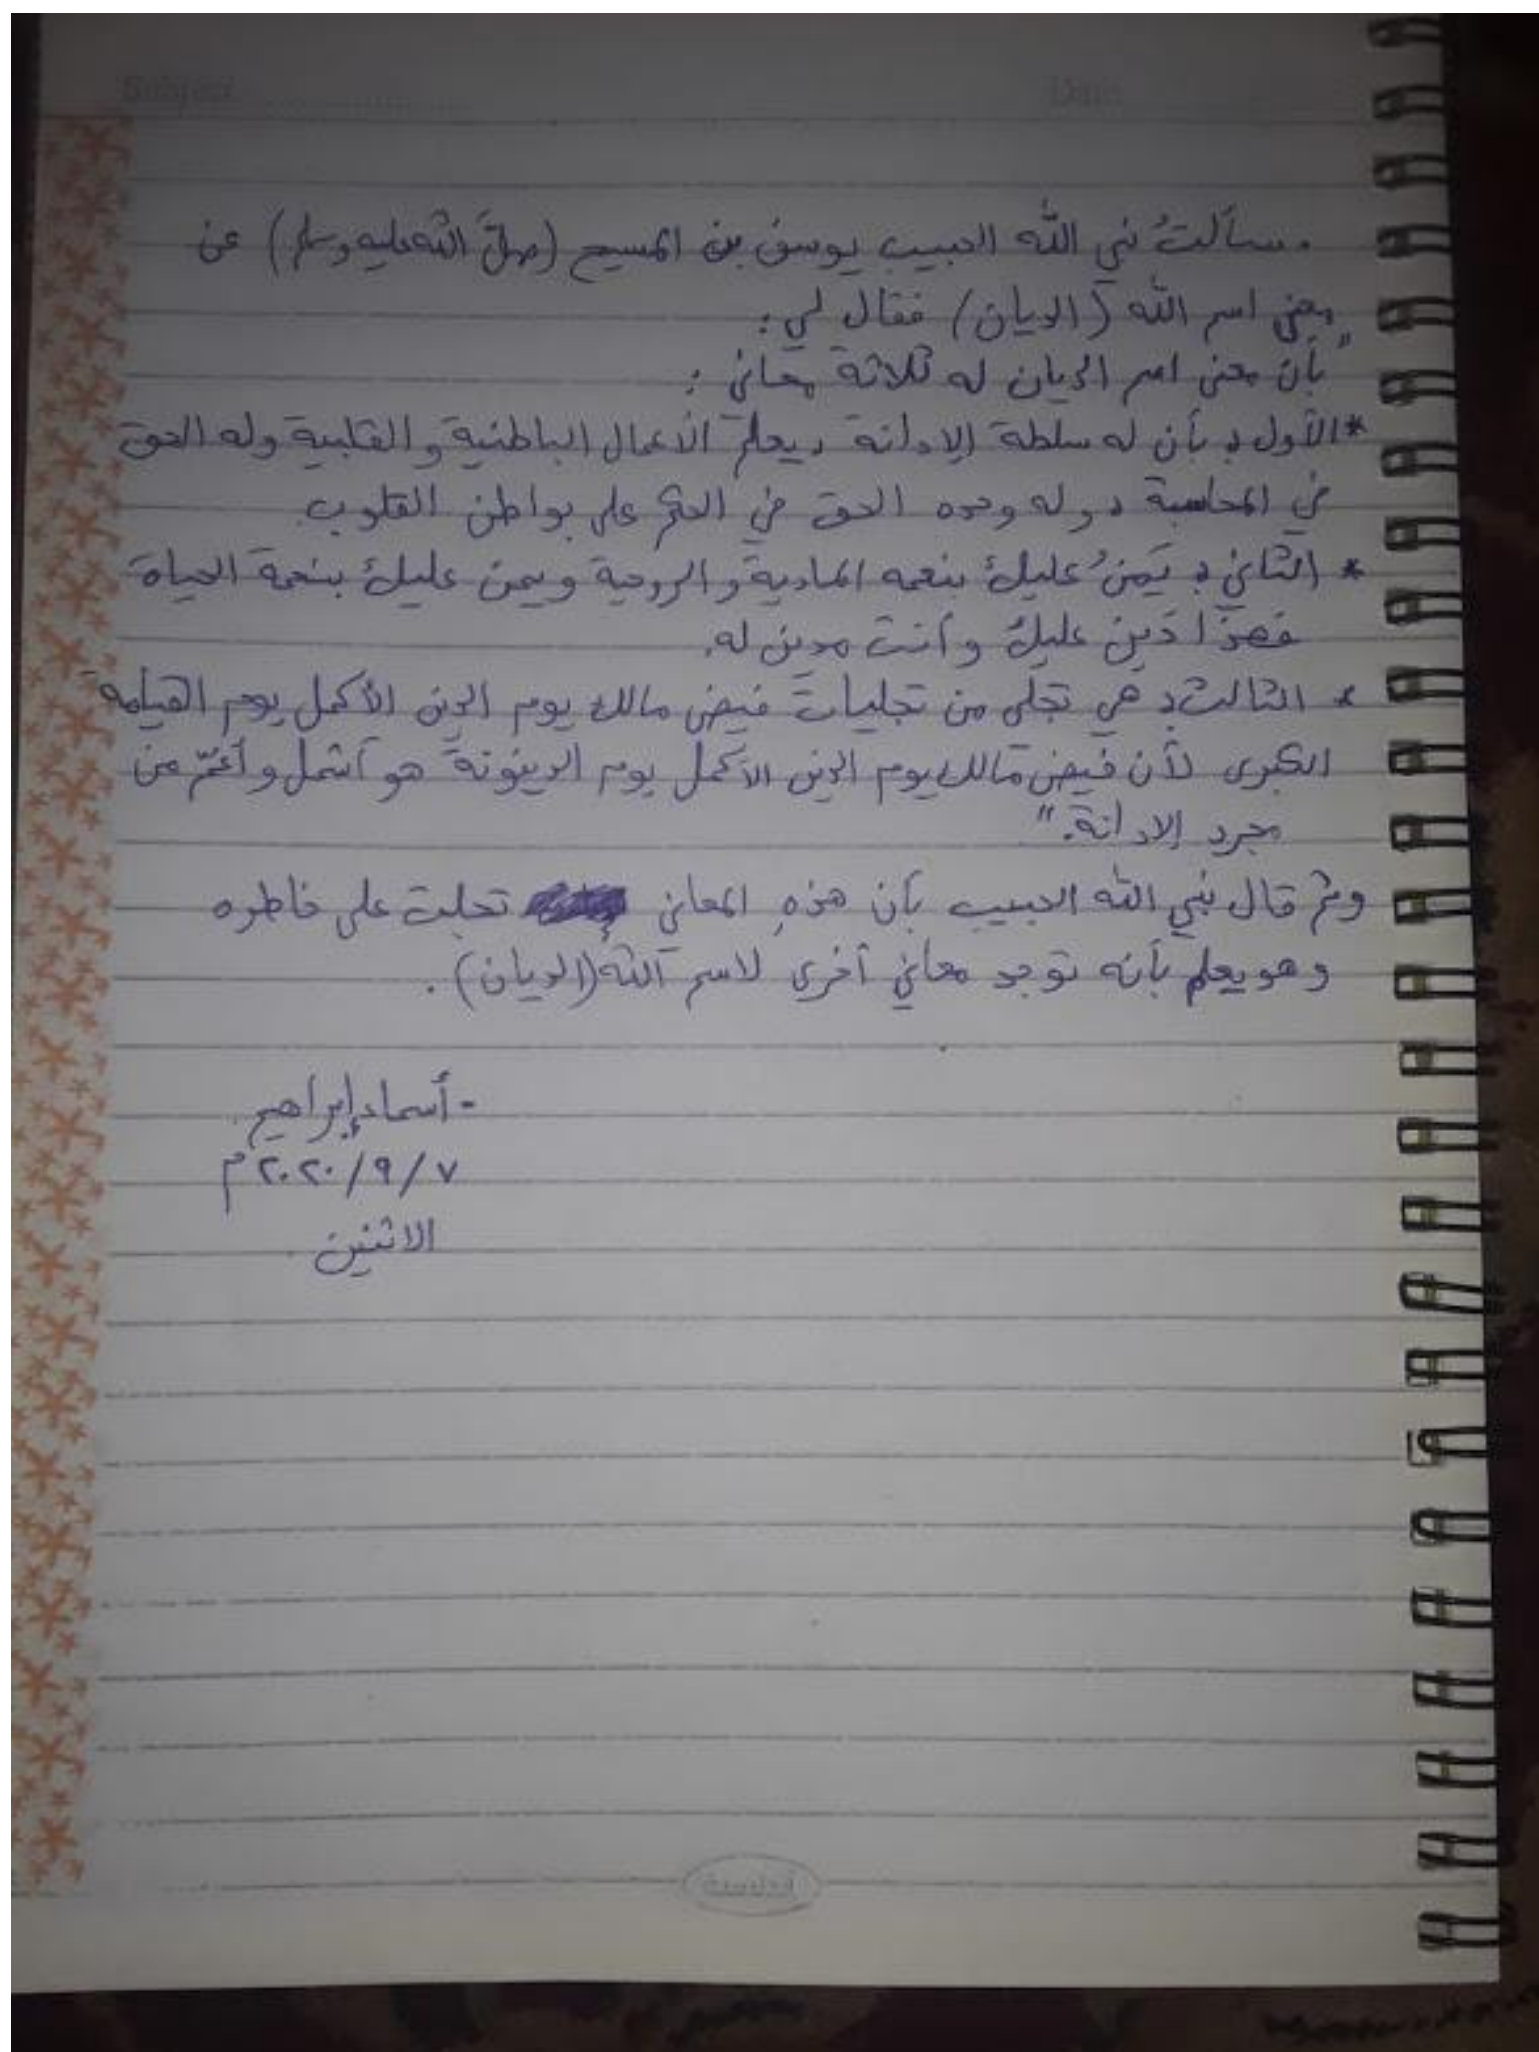 Subject
Date
. سألتُ نبي الله الحبيب يوسف بن المسيح (صلَّ الله عليه وسلم) عن
معنى اسم الله (الديان) فقال لي :
"بأن معنى اسم الديان له ثلاثة معاني :
* الأول : بأن له سلطة الإدانة ، يعلم الأعمال الباطنية والقلبية وله الحق
في المحاسبة ، وله وحده الحق في الحكم على بواطن القلوب.
* الثاني : يَمنُ عليك بنعمه المادية والروحية ويمن عليك بنعمة الحياة
فهذا دَين عليك وأنت مدين له.
* الثالث : هي تجلي من تجليات فيض مالك يوم الدين الأكمل يوم القيامة
الكبرى لأن فيض مالك يوم الدين الأكمل يوم الدينونة هو أشمل وأعمّ من
مجرد الإدانة."
وثم قال نبي الله الحبيب بأن هذهِ المعاني تجلت على خاطره
وهو يعلم بأنه توجد معاني أخرى لاسم الله (الديان) .
- أسماء إبراهيم
٢٠٢٠/٩/٧ م
الاثنين